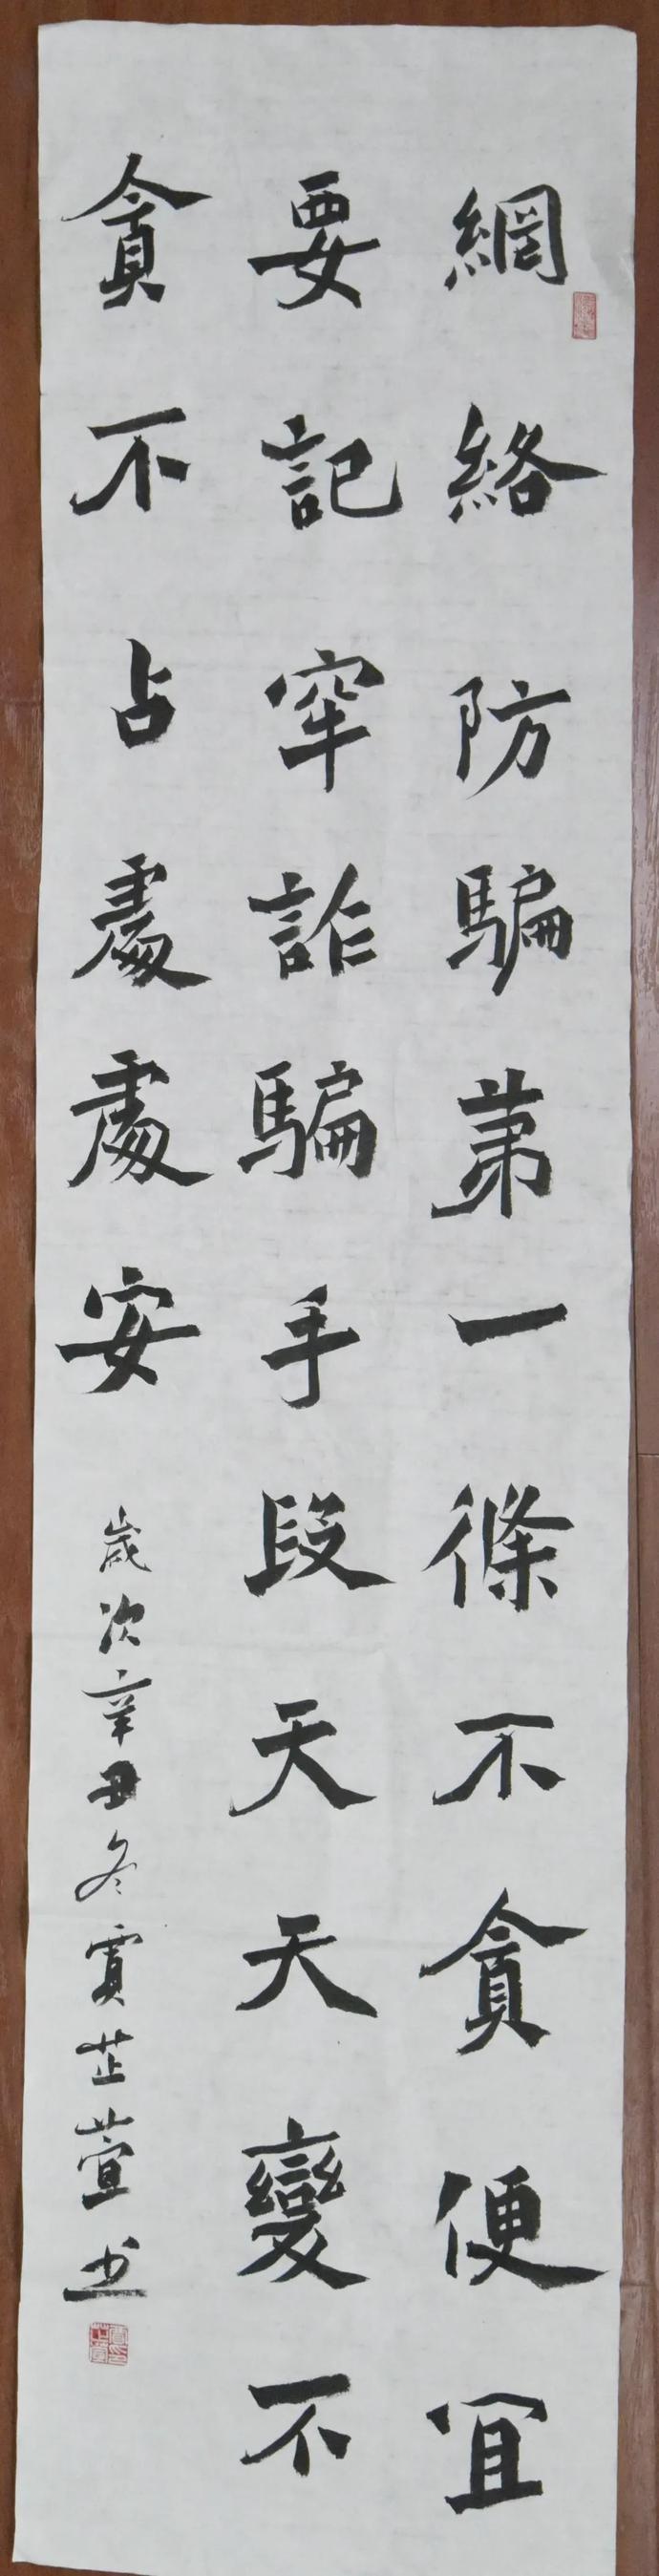 網絡防騙第一條不貪便宜
要記牢詐騙手段天天變不
貪不占處處安
歲次辛丑冬賈芷萱书